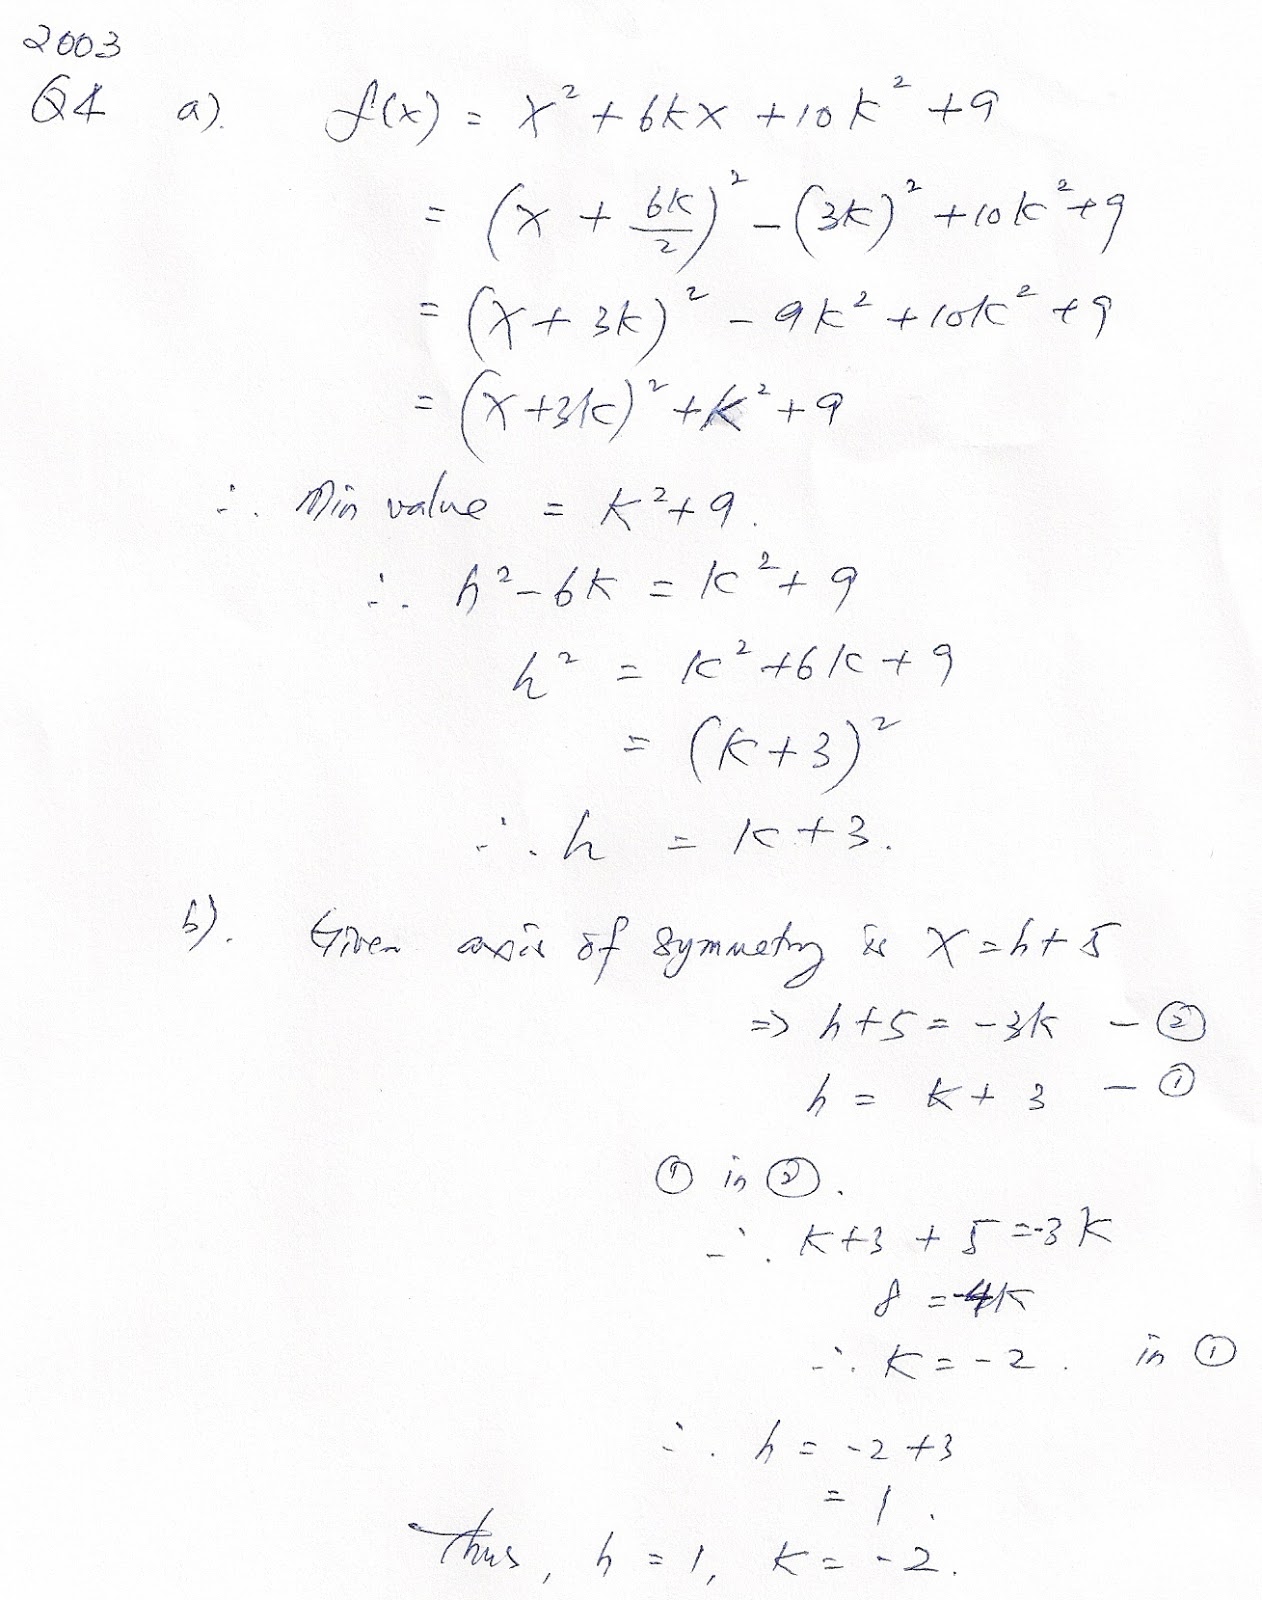 2003
Q4 a). f(x) = x² + 6kx + 10k² + 9
= (x + 6k/2)² - (3k)² + 10k² + 9
= (x + 3k)² - 9k² + 10k² + 9
= (x + 3k)² + k² + 9
∴ Min value = k² + 9.
∴ h² - 6k = k² + 9
h² = k² + 6k + 9
= (k + 3)²
∴ h = k + 3.
b). Given axis of symmetry is x = h + 5
=> h + 5 = -3k - ②
h = k + 3 - ①
① in ②.
∴ k + 3 + 5 = -3k
8 = -4k
∴ k = -2. in ①
∴ h = -2 + 3
= 1.
Thus, h = 1, k = -2.